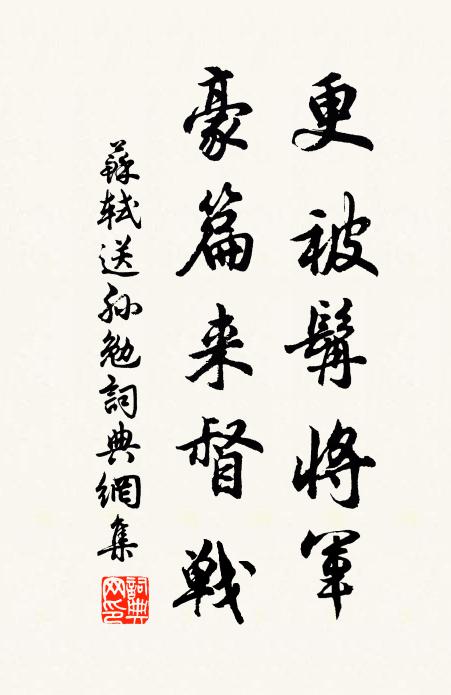 更被髯将軍
豪篇来督戦
蘇軾送孙勉詞典網集
詞典
网印